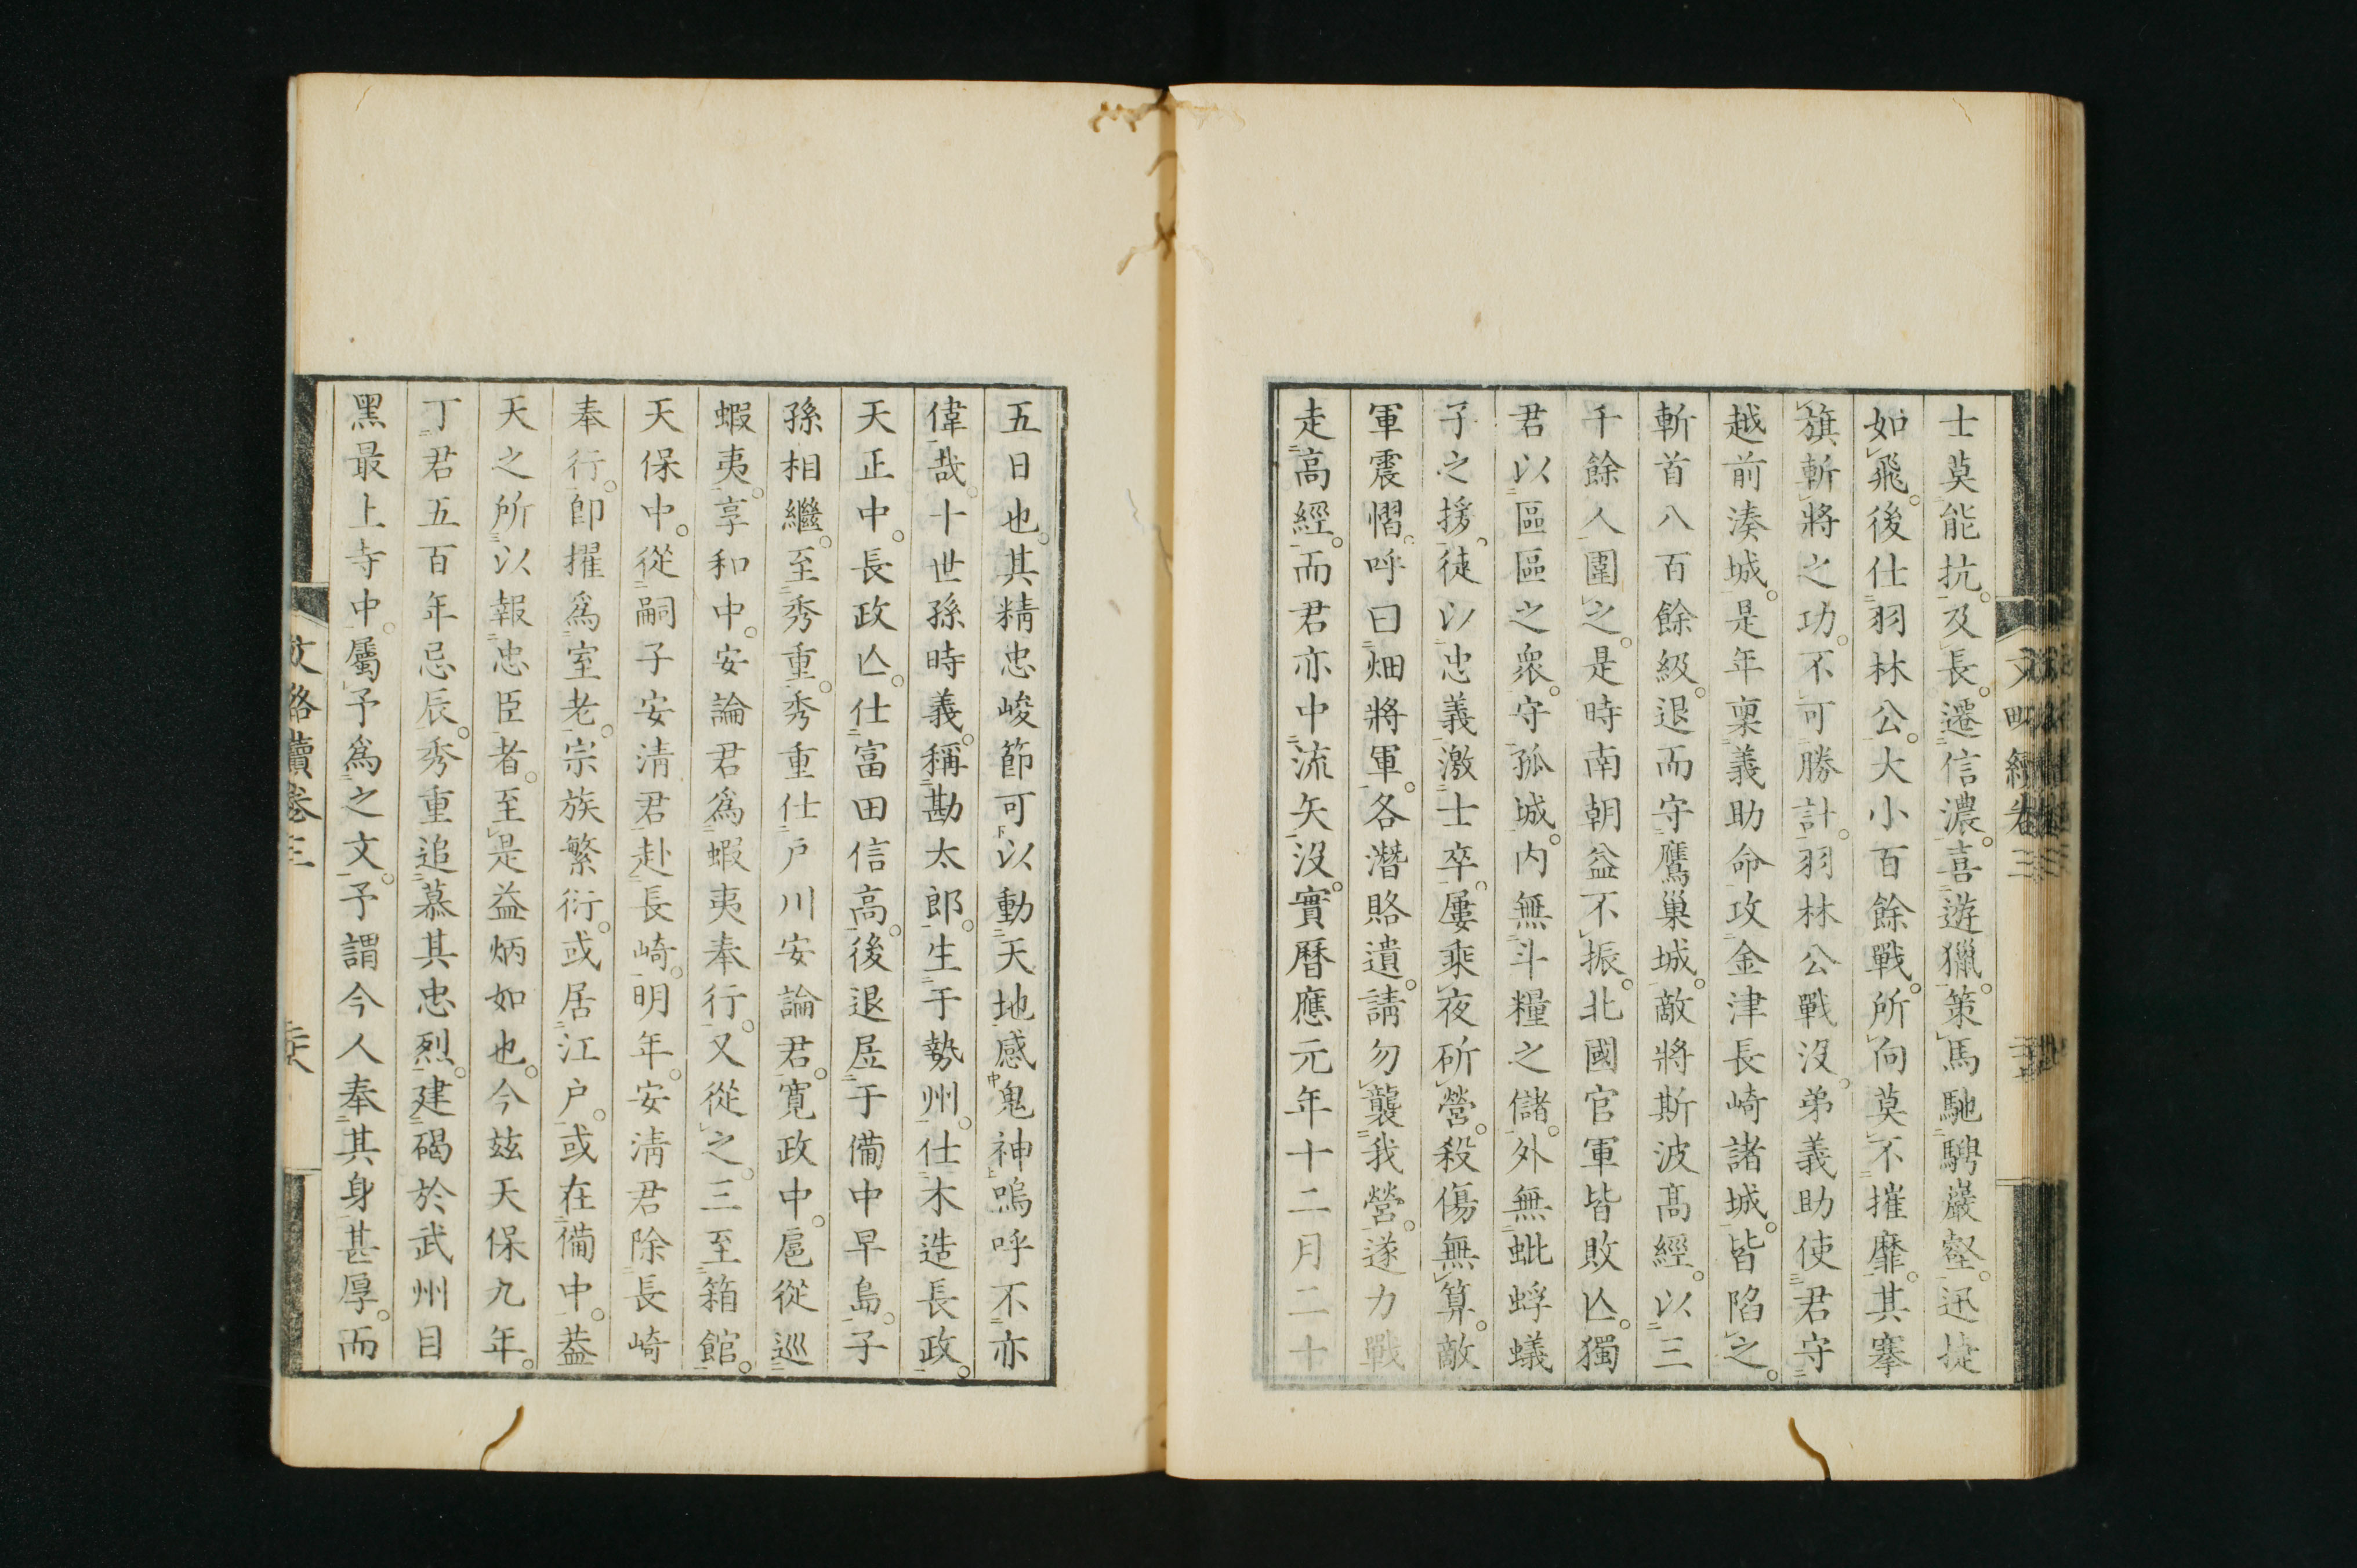 士莫能抗。及長。遷信濃。喜遊獵。策馬馳騁巖壑。迅捷
如飛。後仕羽林公。大小百餘戰。所向莫不摧靡。其搴
旗斬將之功。不可勝計。羽林公戰沒。弟義助使君守
越前湊城。是年稟義助命攻金津長崎諸城。皆陷之。
斬首八百餘級。退而守鷹巢城。敵將斯波高經。以三
千餘人圍之。是時南朝益不振。北國官軍皆敗亾。獨
君以區區之衆。守孤城。内無斗糧之儲。外無蚍蜉蟻
子之援。徒以忠義激士卒。屢乘夜斫營。殺傷無算。敵
軍震慴。呼曰畑將軍。各潛賂遺。請勿襲我營。遂力戰
走高經。而君亦中流矢沒。實曆應元年十二月二十
五日也。其精忠峻節可以動天地感鬼神。嗚呼不亦
偉哉。十世孫時義。稱勘太郎。生于勢州。仕木造長政。
天正中。長政亾。仕富田信高。後退居于備中早島。子
孫相繼。至秀重。秀重仕戶川安論君。寬政中。扈從巡
蝦夷。享和中。安論君爲蝦夷奉行。又從之。三至箱館。
天保中。從嗣子安淸君赴長崎。明年。安淸君除長崎
奉行。卽擢爲室老。宗族繁衍。或居江戶。或在備中。葢
天之所以報忠臣者。至是益炳如也。今玆天保九年。
丁君五百年忌辰。秀重追慕其忠烈。建碣於武州目
黑最上寺中。屬予爲之文。予謂今人奉其身甚厚。而
文略續卷三